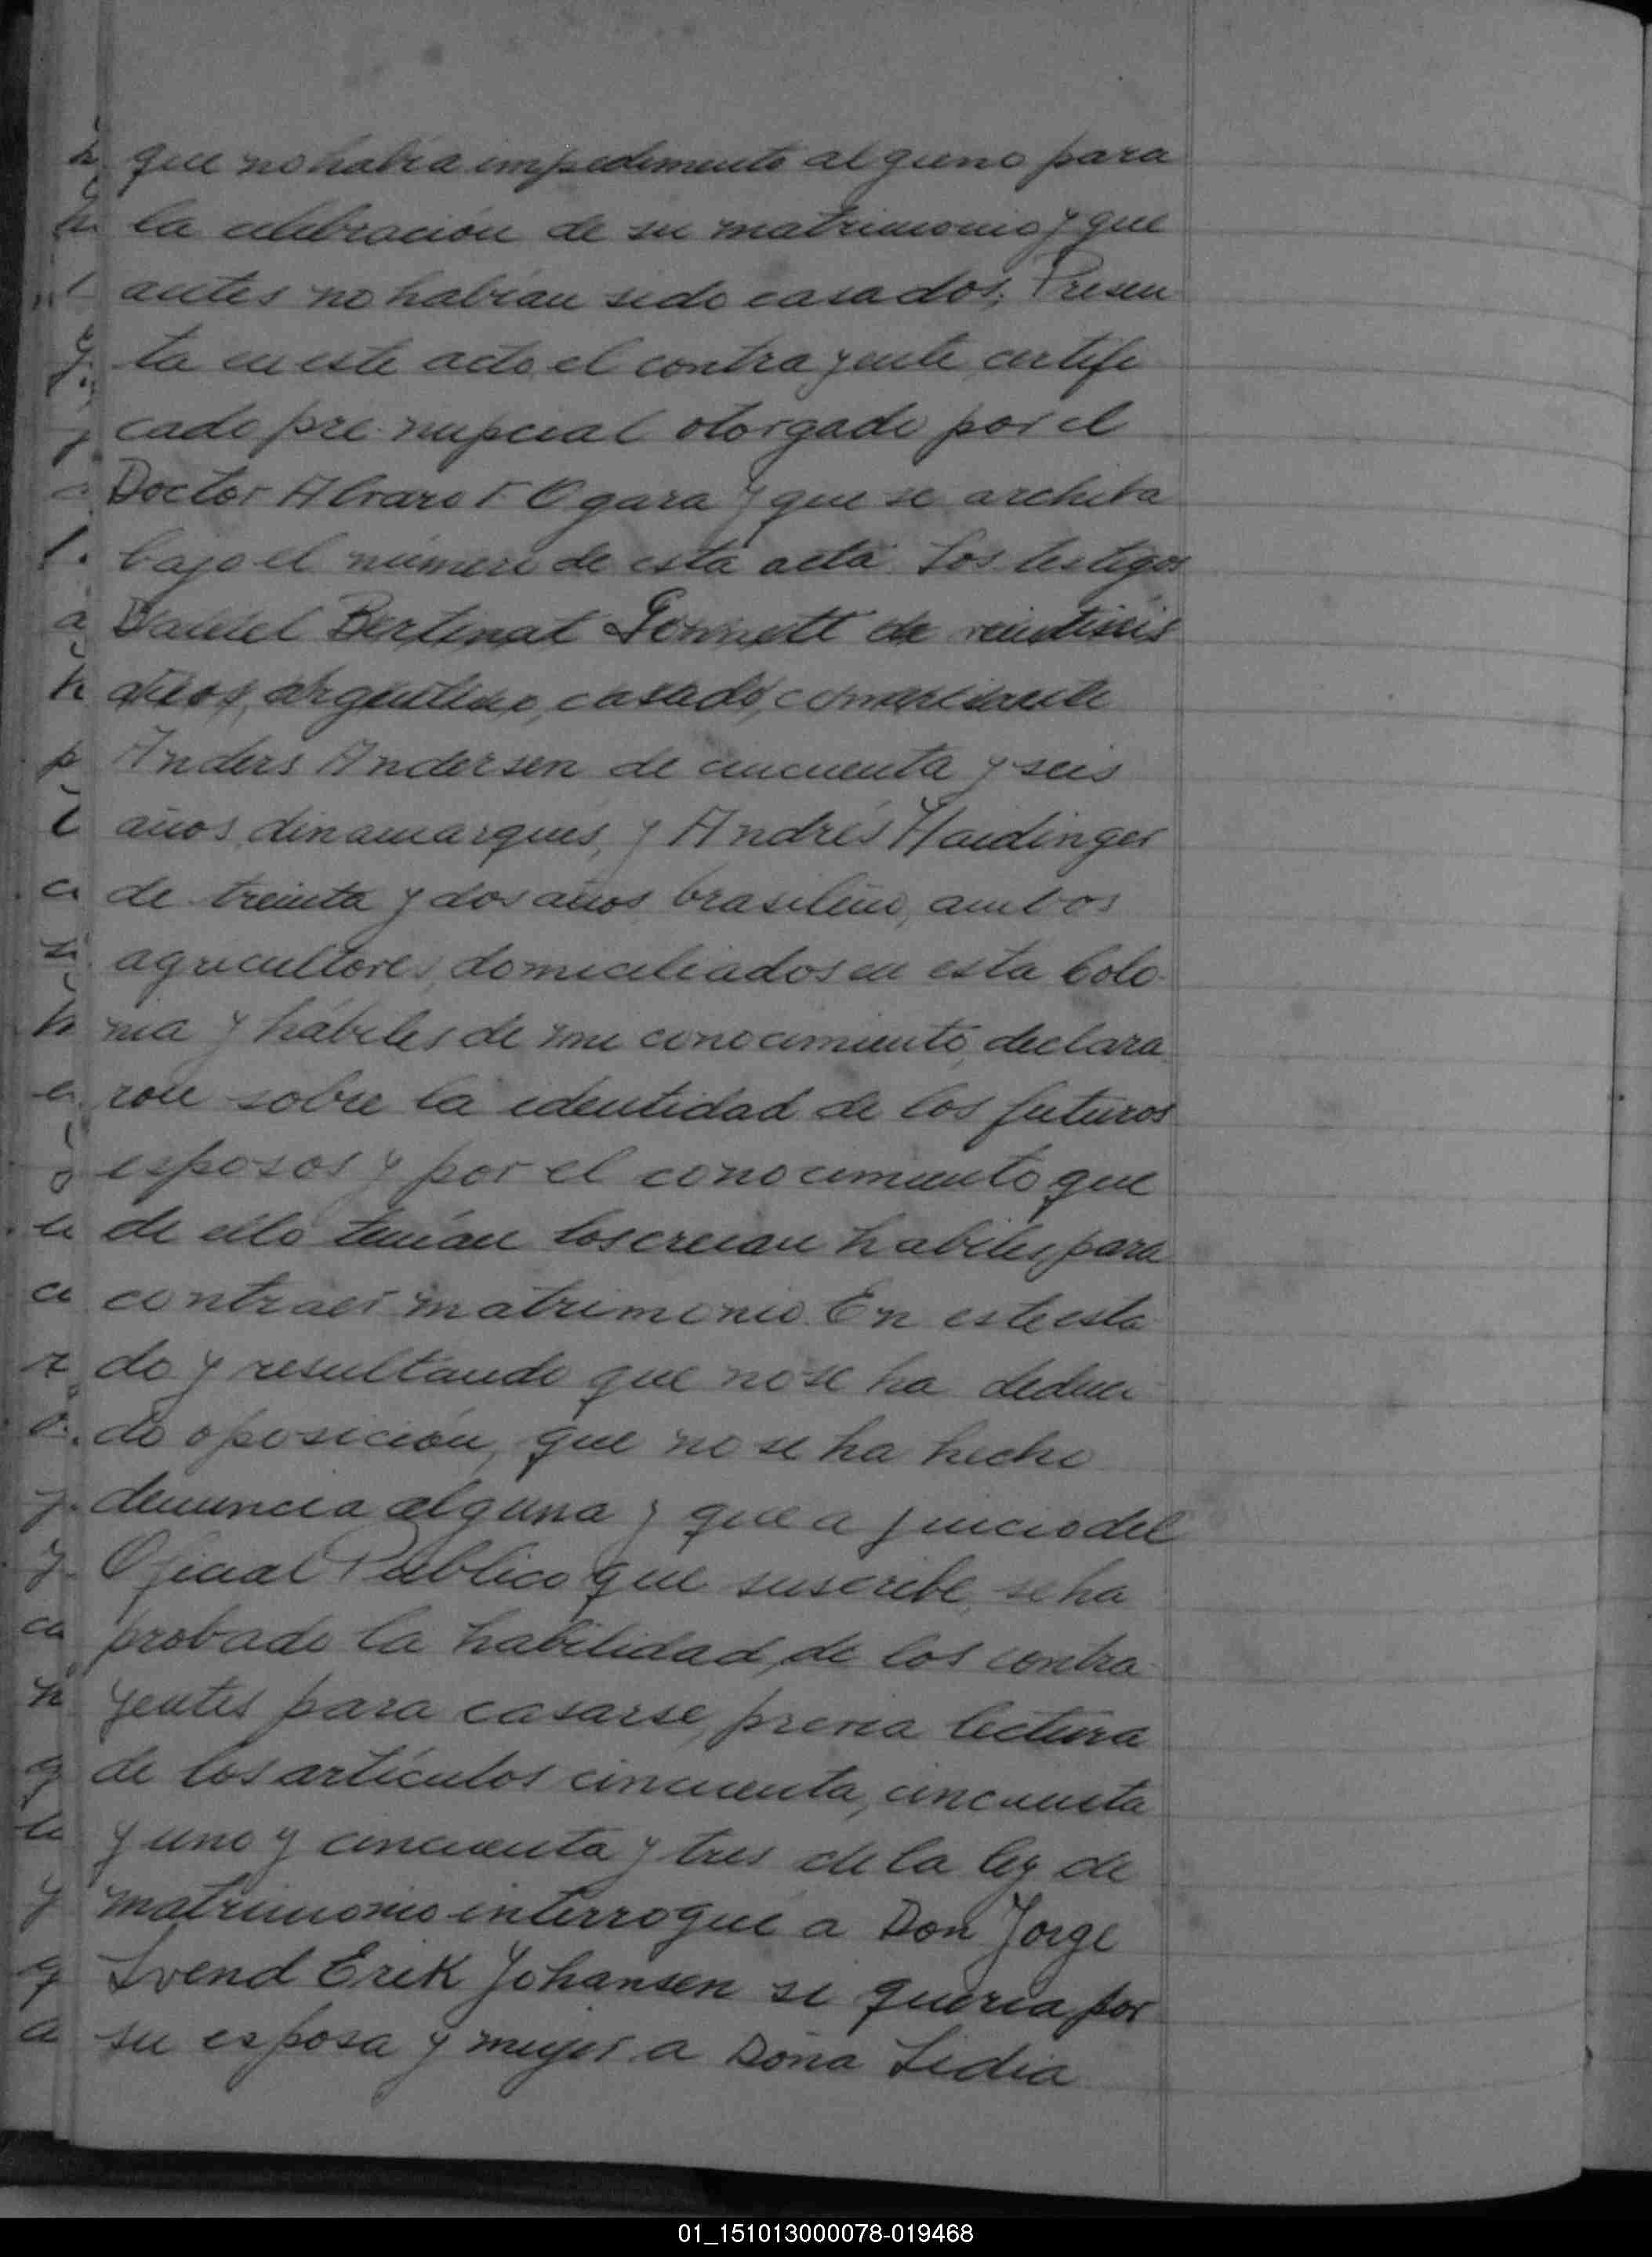 que no había impedimento alguno para
la celebración de su matrimonio y que
antes no habían sido casados. Presen
ta en este acto el contrayente certifi
cado pre-nupcial otorgado por el
Doctor Alvaro F Ogara y que se archiva
bajo el número de esta acta. Los testigos
Daniel Bertinat Gonnett de veintiseis
años, argentino, casado, comerciante
Anders Andersen de cincuenta y seis
años, dinamarques, y Andrés Haidinger
de treinta y dos años brasileño, ambos
agricultores, domiciliados en esta Colo-
nia y hábiles de mi conocimiento, declara
ron sobre la identidad de los futuros
esposos y por el conocimiento que
de ello tenían los creian habiles para
contraer matrimonio. En este esta
do y resultando que no se ha deduci
do oposición, que no se ha hecho
denuncia alguna y que a juicio del
Oficial Publico que suscribe, se ha
probado la habilidad de los contra-
yentes para casarse, previa lectura
de los artículos cincuenta, cincuenta
y uno y cincuenta y tres de la ley de
matrimonio interrogué a Don Jorge
Svend Erik Johansen si quería por
su esposa y mujer a Doña Lidia
01_151013000078-019468